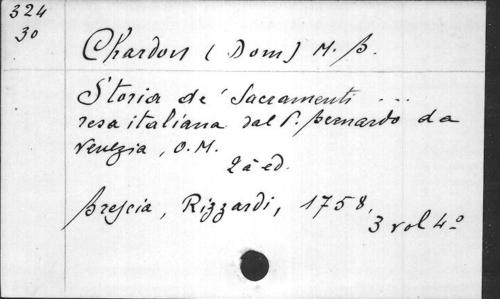 324
30
Chardon (Dom) M. B.
Storia de' Sacramenti ...
resa italiana dal P. Bernardo da
Venezia, O. M.
2a ed.
Brescia, Rizzardi, 1758,
3 vol 4º